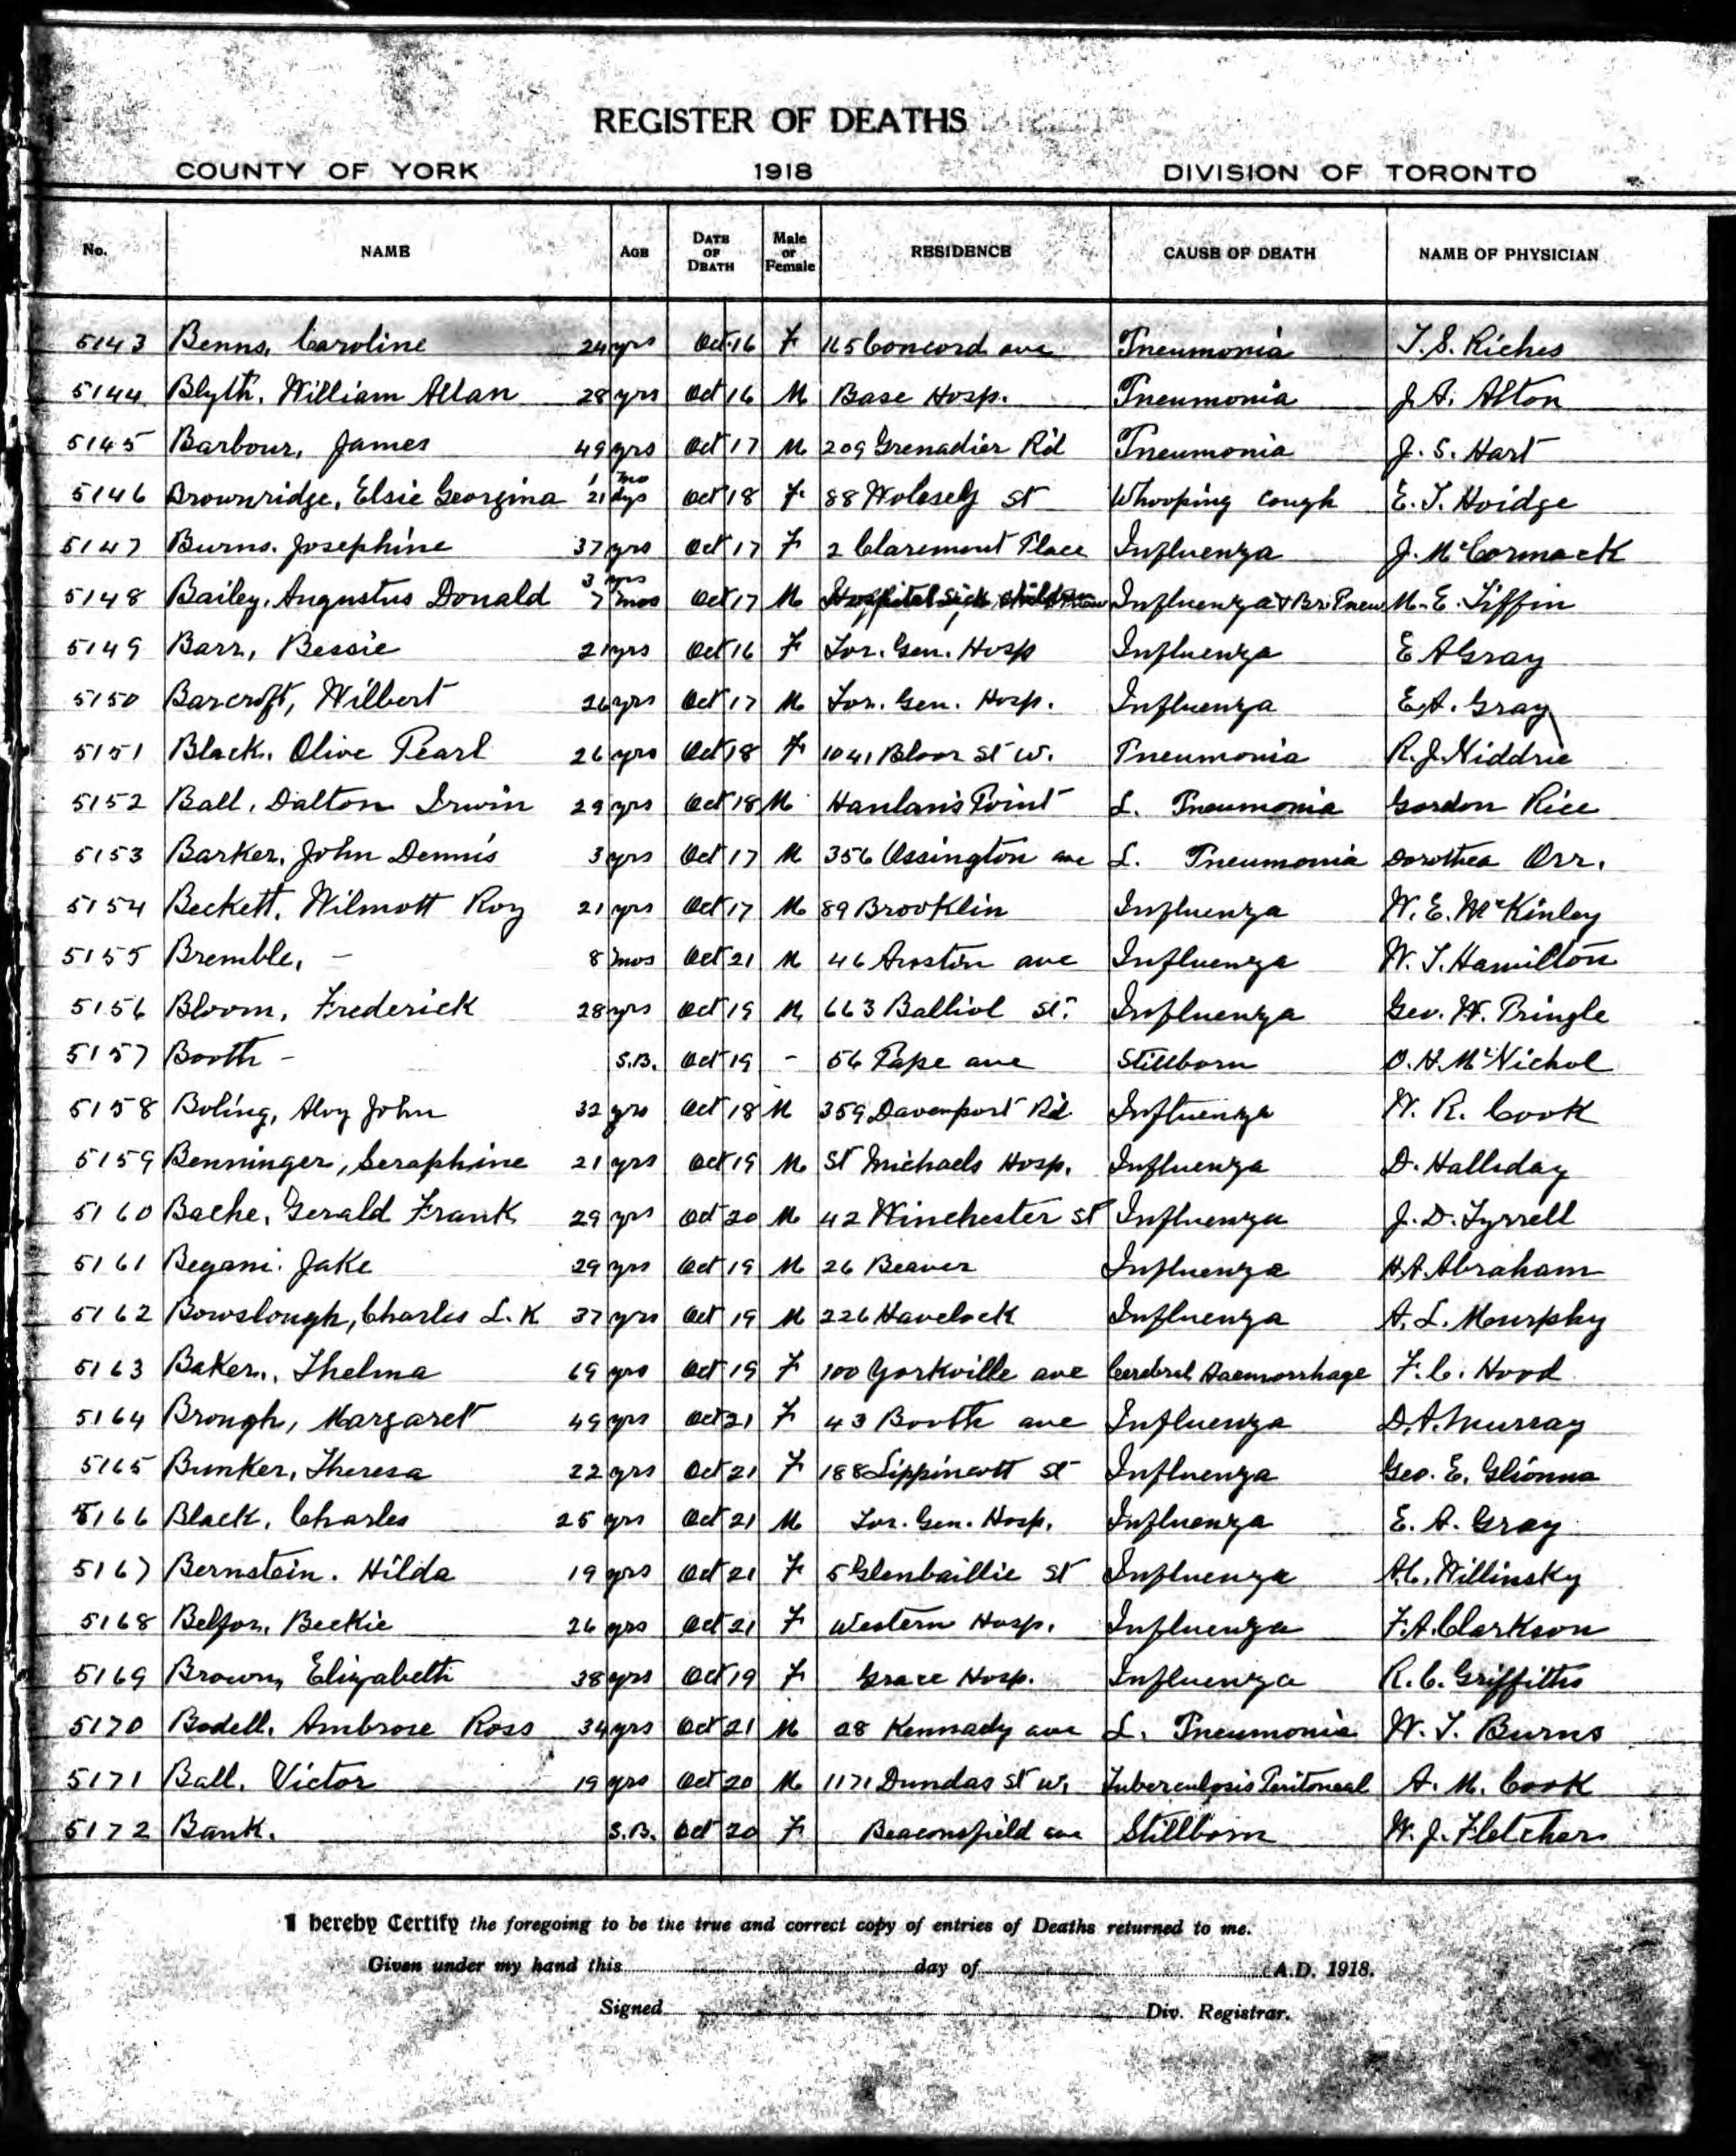 REGISTER OF DEATHS
COUNTY OF YORK 1918 DIVISION OF TORONTO
No. NAME AGE DATE OF DEATH Male or Female RESIDENCE CAUSE OF DEATH NAME OF PHYSICIAN
5143 Benns, Caroline 24 yrs Oct 16 F 165 Concord ave Pneumonia T. S. Riches
5144 Blyth, William Allan 28 yrs Oct 16 M Base Hosp. Pneumonia J. A. Alton
5145 Barbour, James 49 yrs Oct 17 M 209 Grenadier Rd Pneumonia J. S. Hart
5146 Brownridge, Elsie Georgina 1 mo 21 dys Oct 18 F 88 Wolesely St Whooping Cough E. T. Hoidge
5147 Burns, Josephine 37 yrs Oct 17 F 2 Claremont Place Influenza J. McCormack
5148 Bailey, Augustus Donald 3 yrs 7 mos Oct 17 M Hospital Sick Children Influenza & Br. Pneu M. E. Tiffin
5149 Barr, Bessie 21 yrs Oct 16 F Tor. Gen. Hosp Influenza E A Gray
5150 Barcroft, Wilbert 26 yrs Oct 17 M Tor. Gen. Hosp. Influenza E. A. Gray
5151 Black, Olive Pearl 26 yrs Oct 18 F 1041 Bloor St W. Pneumonia R. J. Niddrie
5152 Ball, Dalton Irwin 29 yrs Oct 18 M Hanlan's Point L. Pneumonia Gordon Rice
5153 Barker, John Dennis 3 yrs Oct 17 M 356 Ossington ave L. Pneumonia Dorothea Orr.
5154 Beckett, Wilmott Roy 21 yrs Oct 17 M 89 Brooklin Influenza W. E. McKinley
5155 Bremble, - 8 mos Oct 21 M 46 Austin ave Influenza W. T. Hamilton
5156 Bloom, Frederick 28 yrs Oct 19 M 663 Balliol St. Influenza Geo. W. Pringle
5157 Booth - S.B. Oct 19 - 56 Pape ave Stillborn D. H. McNichol
5158 Boling, Alvy John 32 yrs Oct 18 M 359 Davenport Rd Influenza W. R. Cook
5159 Benninger, Seraphine 21 yrs Oct 19 M St Michaels Hosp. Influenza D. Halliday
5160 Bache, Gerald Frank 29 yrs Oct 20 M 42 Winchester St Influenza J. D. Tyrrell
5161 Begani. Jake 29 yrs Oct 19 M 26 Beaver Influenza H. A. Abraham
5162 Bowslough, Charles L. K 37 yrs Oct 19 M 226 Havelock Influenza A. L. Murphy
5163 Baker, Thelma 69 yrs Oct 19 F 100 Yorkville ave Cerebral Haemorrhage F. C. Hood
5164 Brough, Margaret 49 yrs Oct 21 F 43 Booth ave Influenza D. A. Murray
5165 Bunker, Theresa 22 yrs Oct 21 F 188 Lippincott St Influenza Geo. E. Glionna
5166 Black, Charles 25 yrs Oct 21 M Tor. Gen. Hosp. Influenza E. A. Gray
5167 Bernstein. Hilda 19 yrs Oct 21 F 5 Glenbaillie St Influenza A. C. Willinsky
5168 Belfor, Beckie 26 yrs Oct 21 F Western Hosp. Influenza F. A. Clarkson
5169 Brown, Elizabeth 38 yrs Oct 19 F Grace Hosp. Influenza R. C. Griffiths
5170 Bodell, Ambrose Ross 34 yrs Oct 21 M 28 Kennady ave L. Pneumonia W. T. Burns
5171 Ball, Victor 19 yrs Oct 20 M 1171 Dundas St W. Tuberculosis Peritoneal A. M. Cook
5172 Bank. S.B. Oct 20 F Beaconsfield ave Stillborn W. J. Fletcher
I hereby Certify the foregoing to be the true and correct copy of entries of Deaths returned to me.
Given under my hand this day of A.D. 1918.
Signed Div. Registrar.